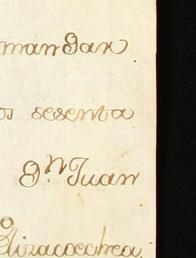 mandar
os sesenta
Dⁿ Juan
Elizacoechea